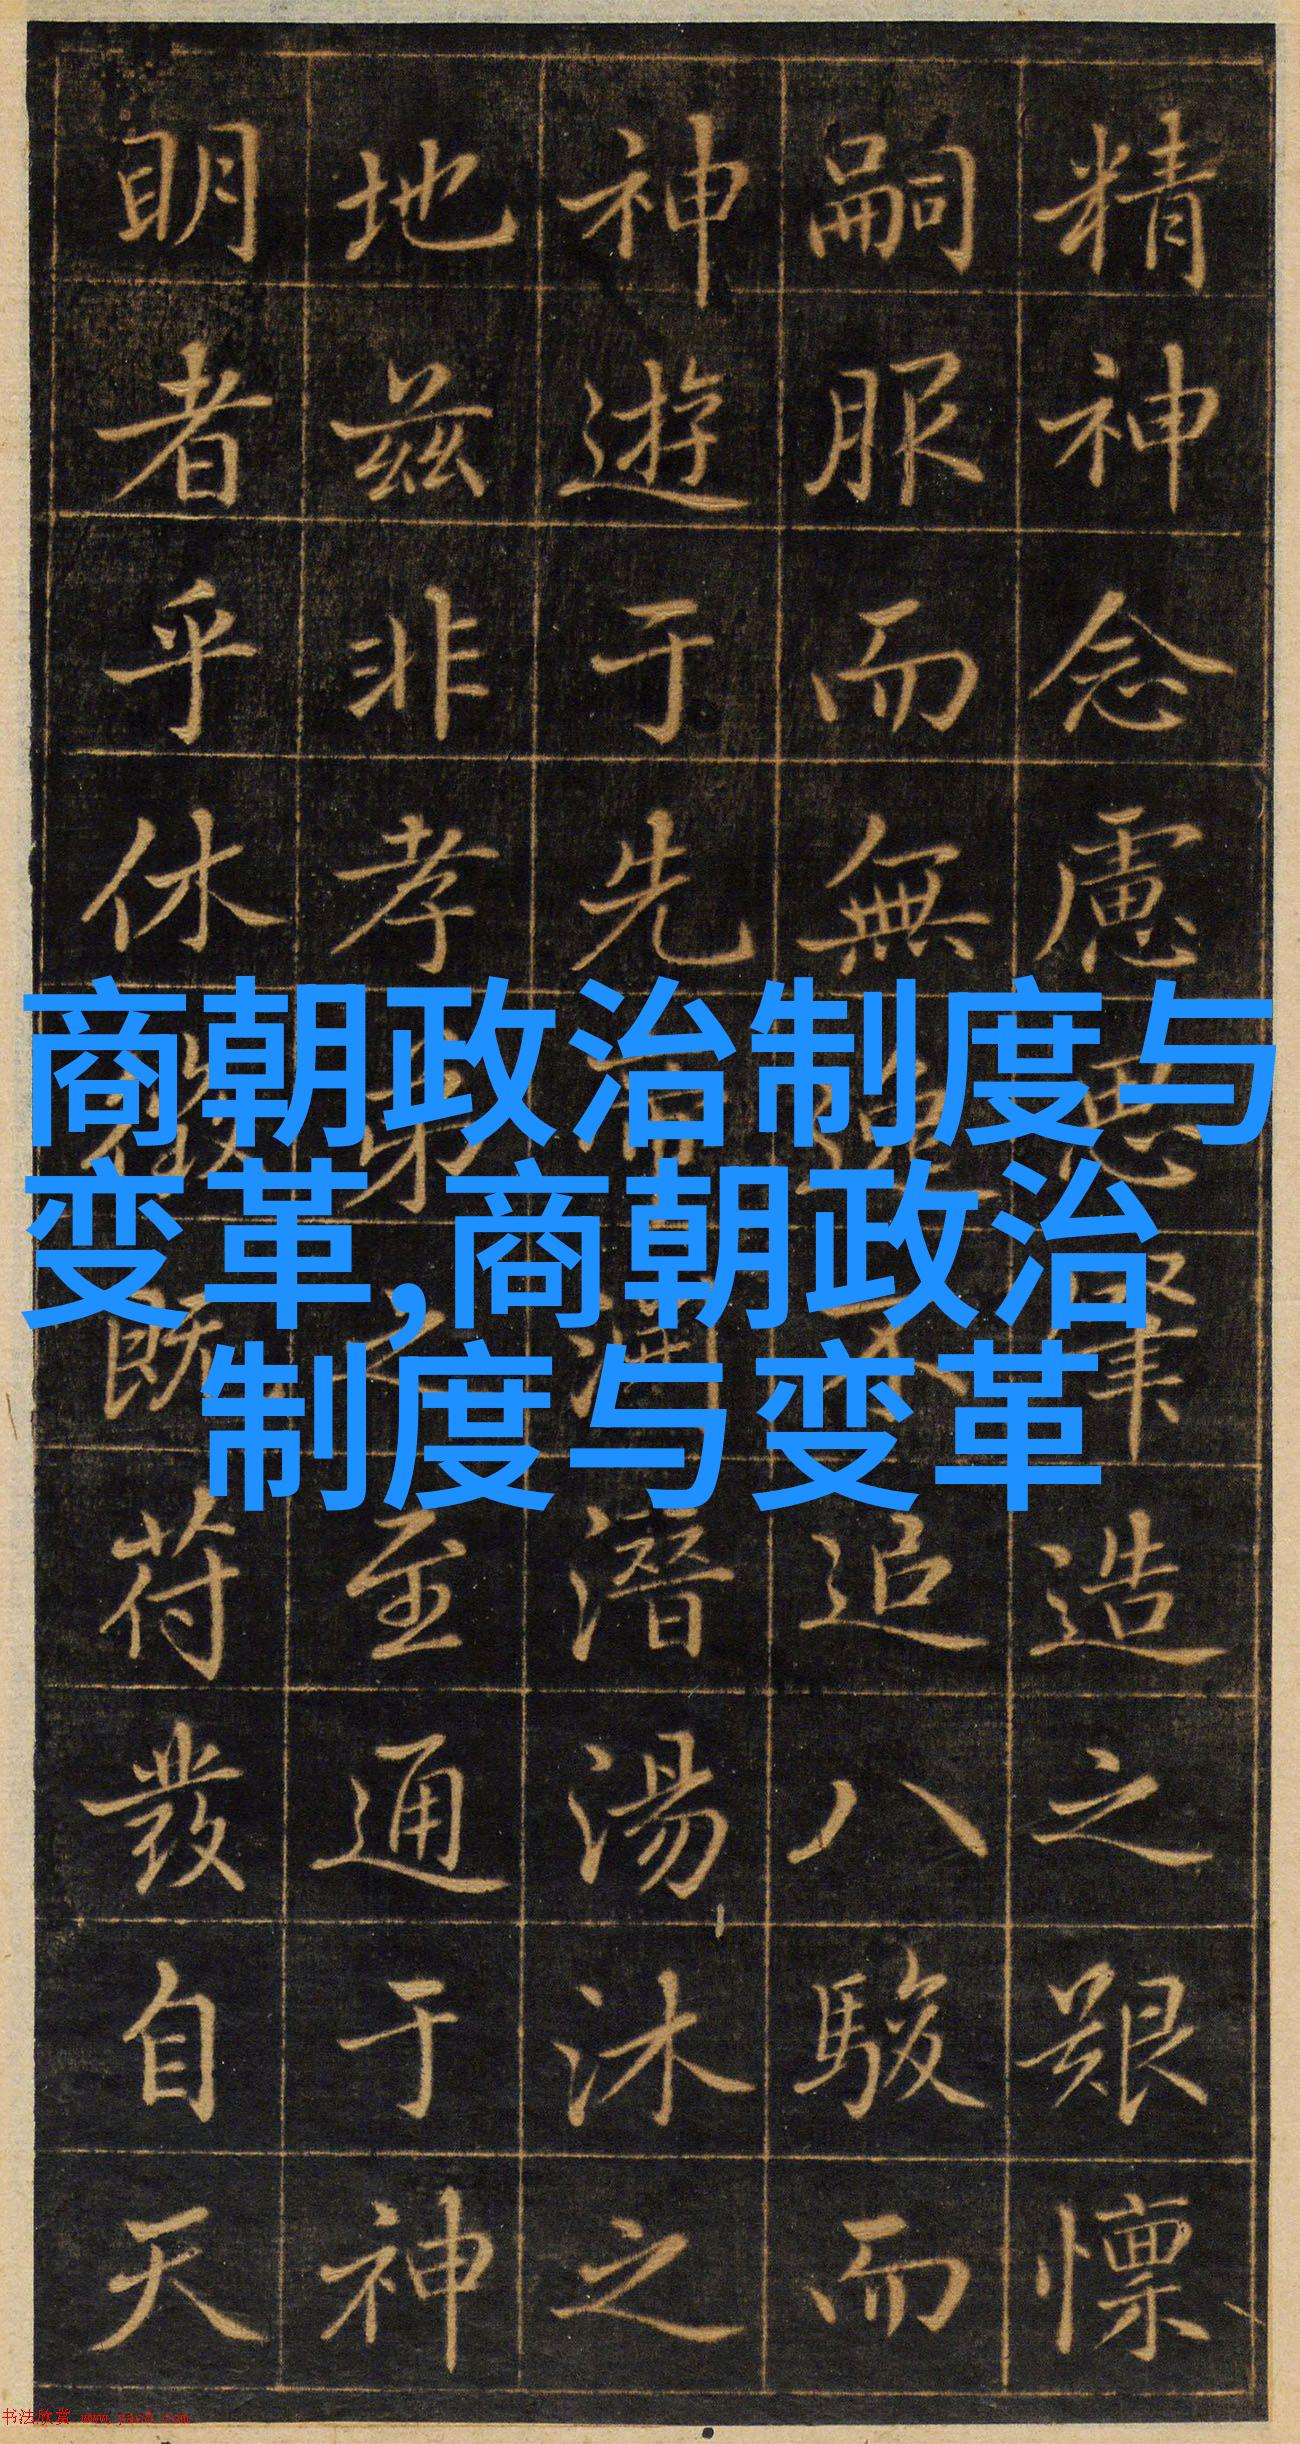 精神念慮肇造之艱懍
嗣服而無逸不追八駿而
神遊于先潛湯沐之
地茲非孝弟之至通于神
明者乎休徵既苻發自天
商朝政治制度与
变革,商朝政治
制度与变革
书法欣赏 www.yac8.com